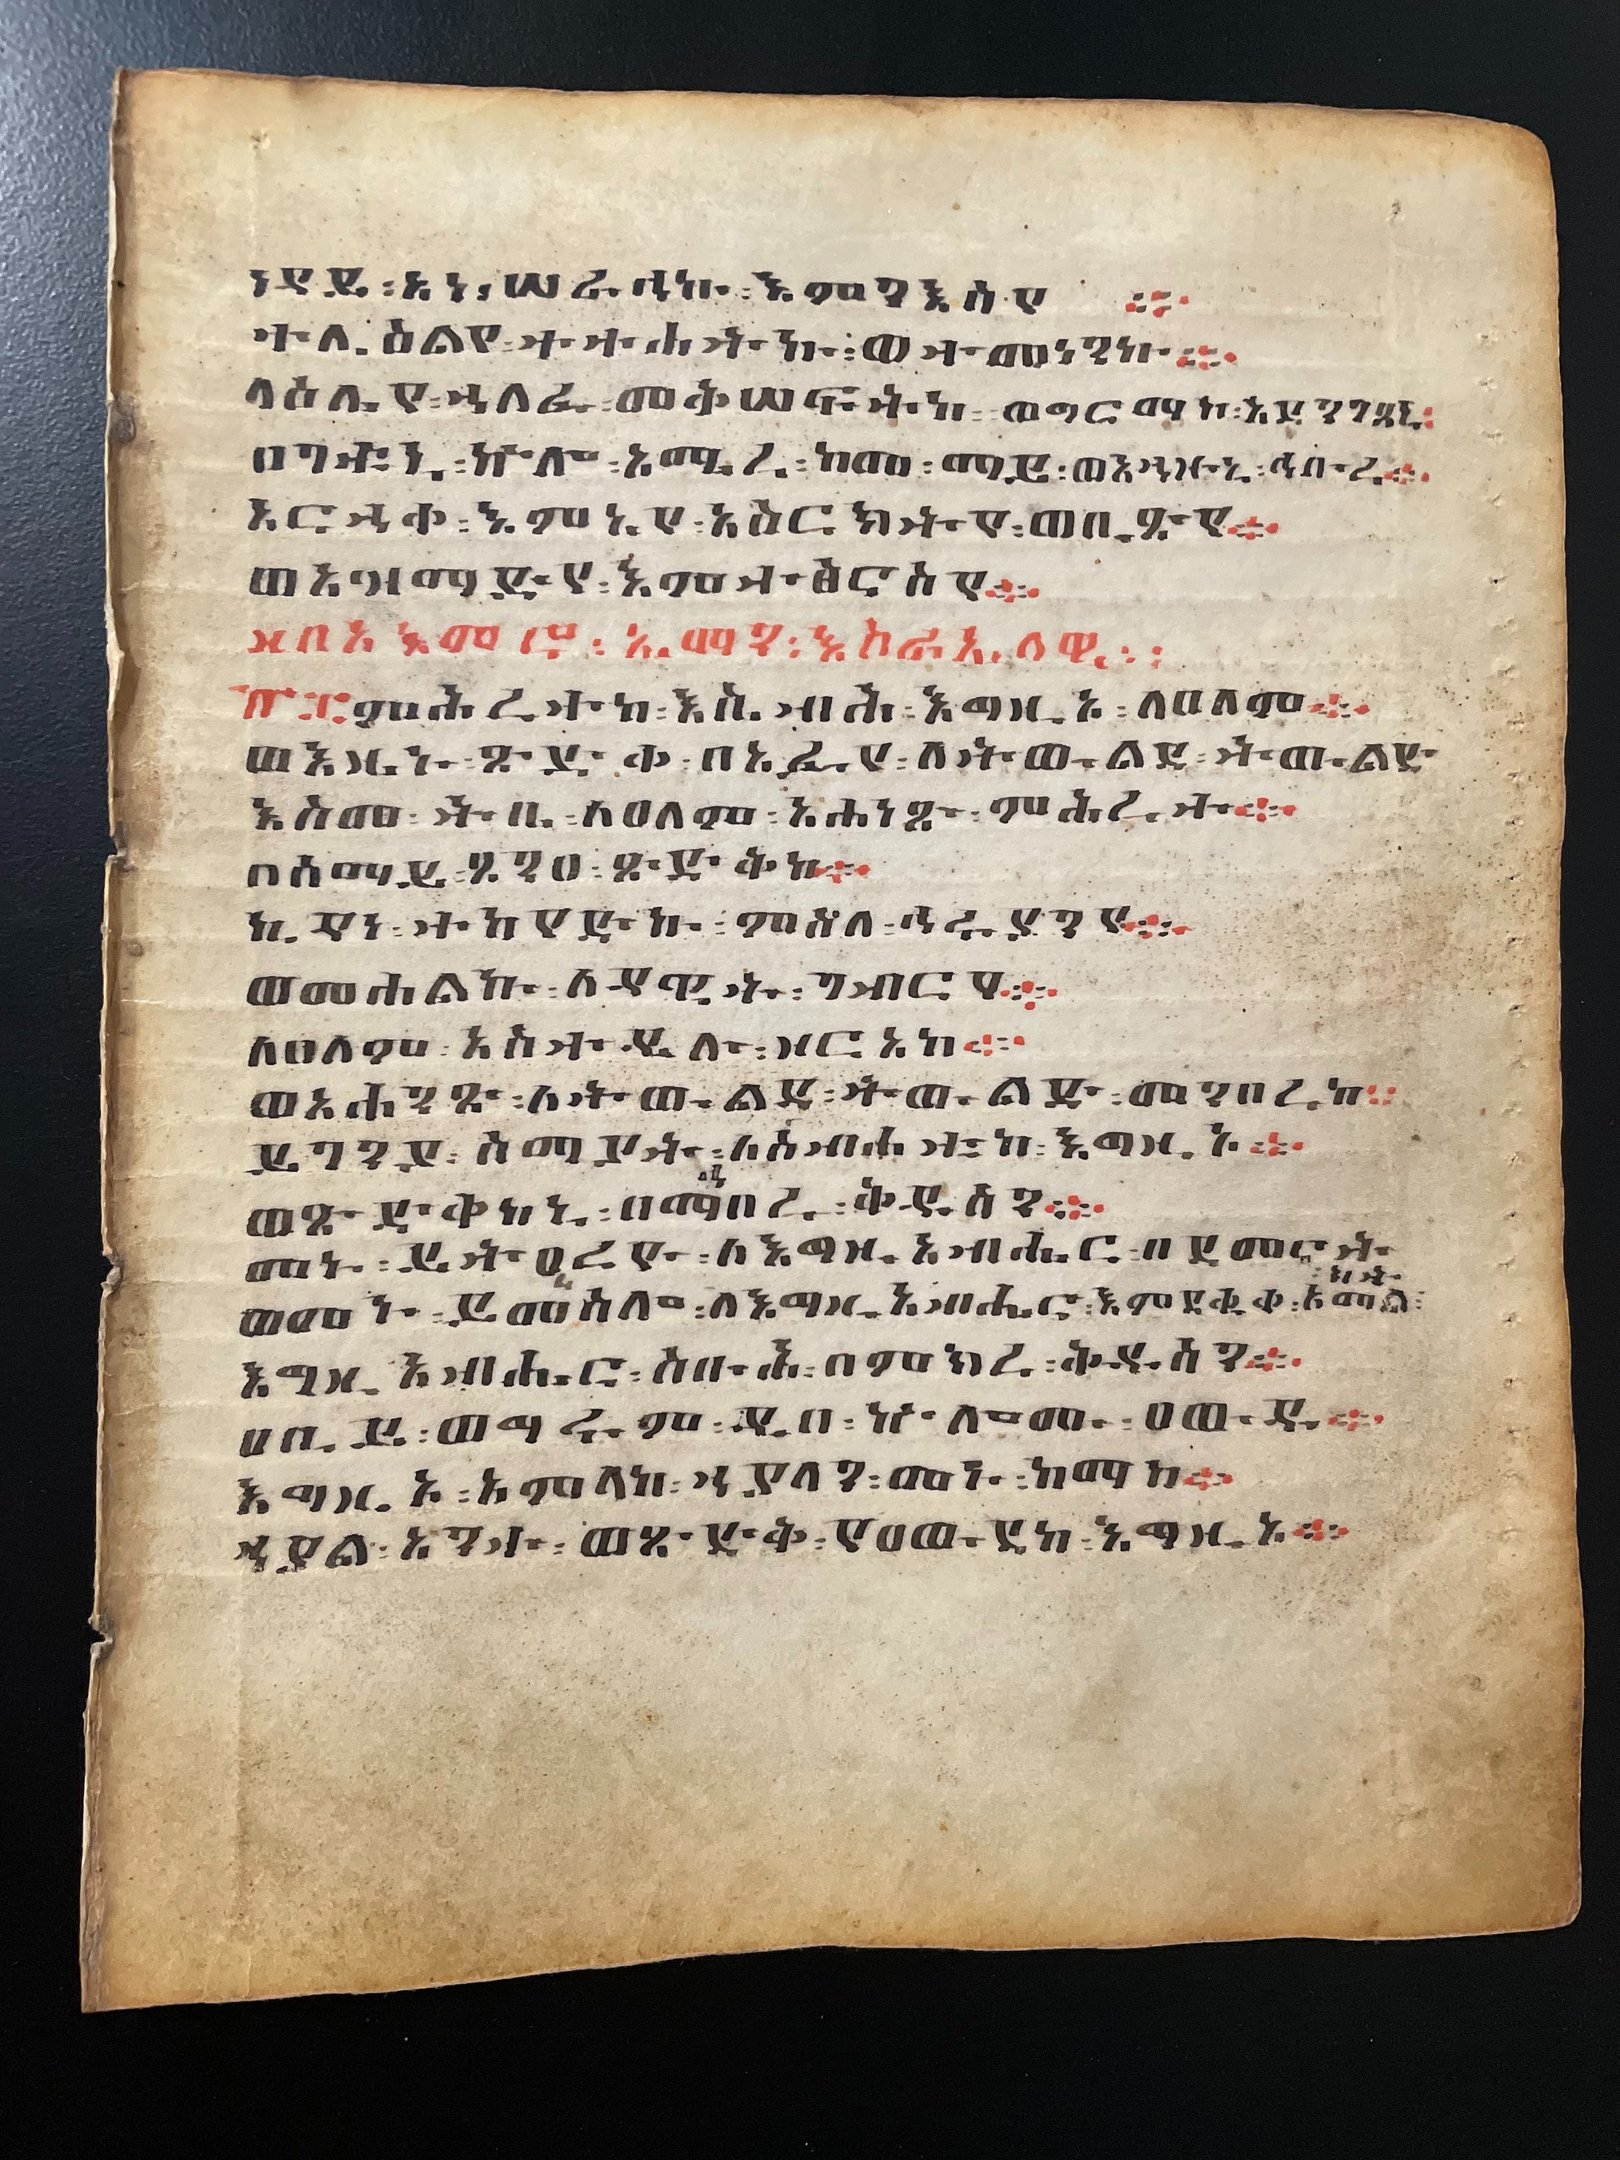 ነዳይ፡አነ፡ሠራሕኩ፡እምንእስየ ።
ተለዒልየ፡ተትሕትኩ፡ወተመነንኩ ።
ላዕሌየ፡ኀለፈ፡መቅሠፍትከ፡ወግርማከ፡አደንገፀኒ ።
ዐገቱኒ፡ኵሎ፡አሚረ፡ከመ፡ማይ፡ወአኀዙኒ፡ኅቡረ ።
አርኀቀ፡እምኔየ፡አዕርክትየ፡ወቢጽየ ።
ወአዝማድየ፡እምተፅናስየ ።
ዘበአእምሮ፡ኤማን፡እስራኤላዊ ።
፹፰ምሕረተከ፡እሴብሕ፡እግዚኦ፡ለዓለም ።
ወእዜኑ፡ጽድቀ፡በአፉየ፡ለትውልደ፡ትውልድ
እስመ፡ትቤ፡ለዓለም፡አሐንጽ፡ምሕረተ ።
በሰማይ፡ጸንዐ፡ጽድቅከ ።
ኪዳነ፡ተካየድኩ፡ምስለ፡ኅሩያንየ ።
ወመሐልኩ፡ለዳዊት፡ገብርየ ።
ለዓለም፡አስተዴሉ፡ዘርአከ ።
ወአሐንጽ፡ለትውልደ፡ትውልድ፡መንበረከ ።
ይገንያ፡ሰማያት፡ለስብሐቲከ፡እግዚኦ ።
ወጽድቅከኒ፡በማኅበረ፡ቅዱሳን ።
መኑ፡ይትዔረዮ፡ለእግዚአብሔር፡በደመናት
ወመኑ፡ይመስሎ፡ለእግዚአብሔር፡እምደቂቀ፡አማልክት፡
እግዚአብሔር፡ስቡሕ፡በምክረ፡ቅዱሳን ።
ዐቢይ፡ወግሩም፡ዲበ፡ኵሎሙ፡ዐውዱ ።
እግዚኦ፡አምላከ፡ኀያላን፡መኑ፡ከማከ ።
ኀያል፡አንተ፡ወጽድቅ፡የዐውደከ፡እግዚኦ ።